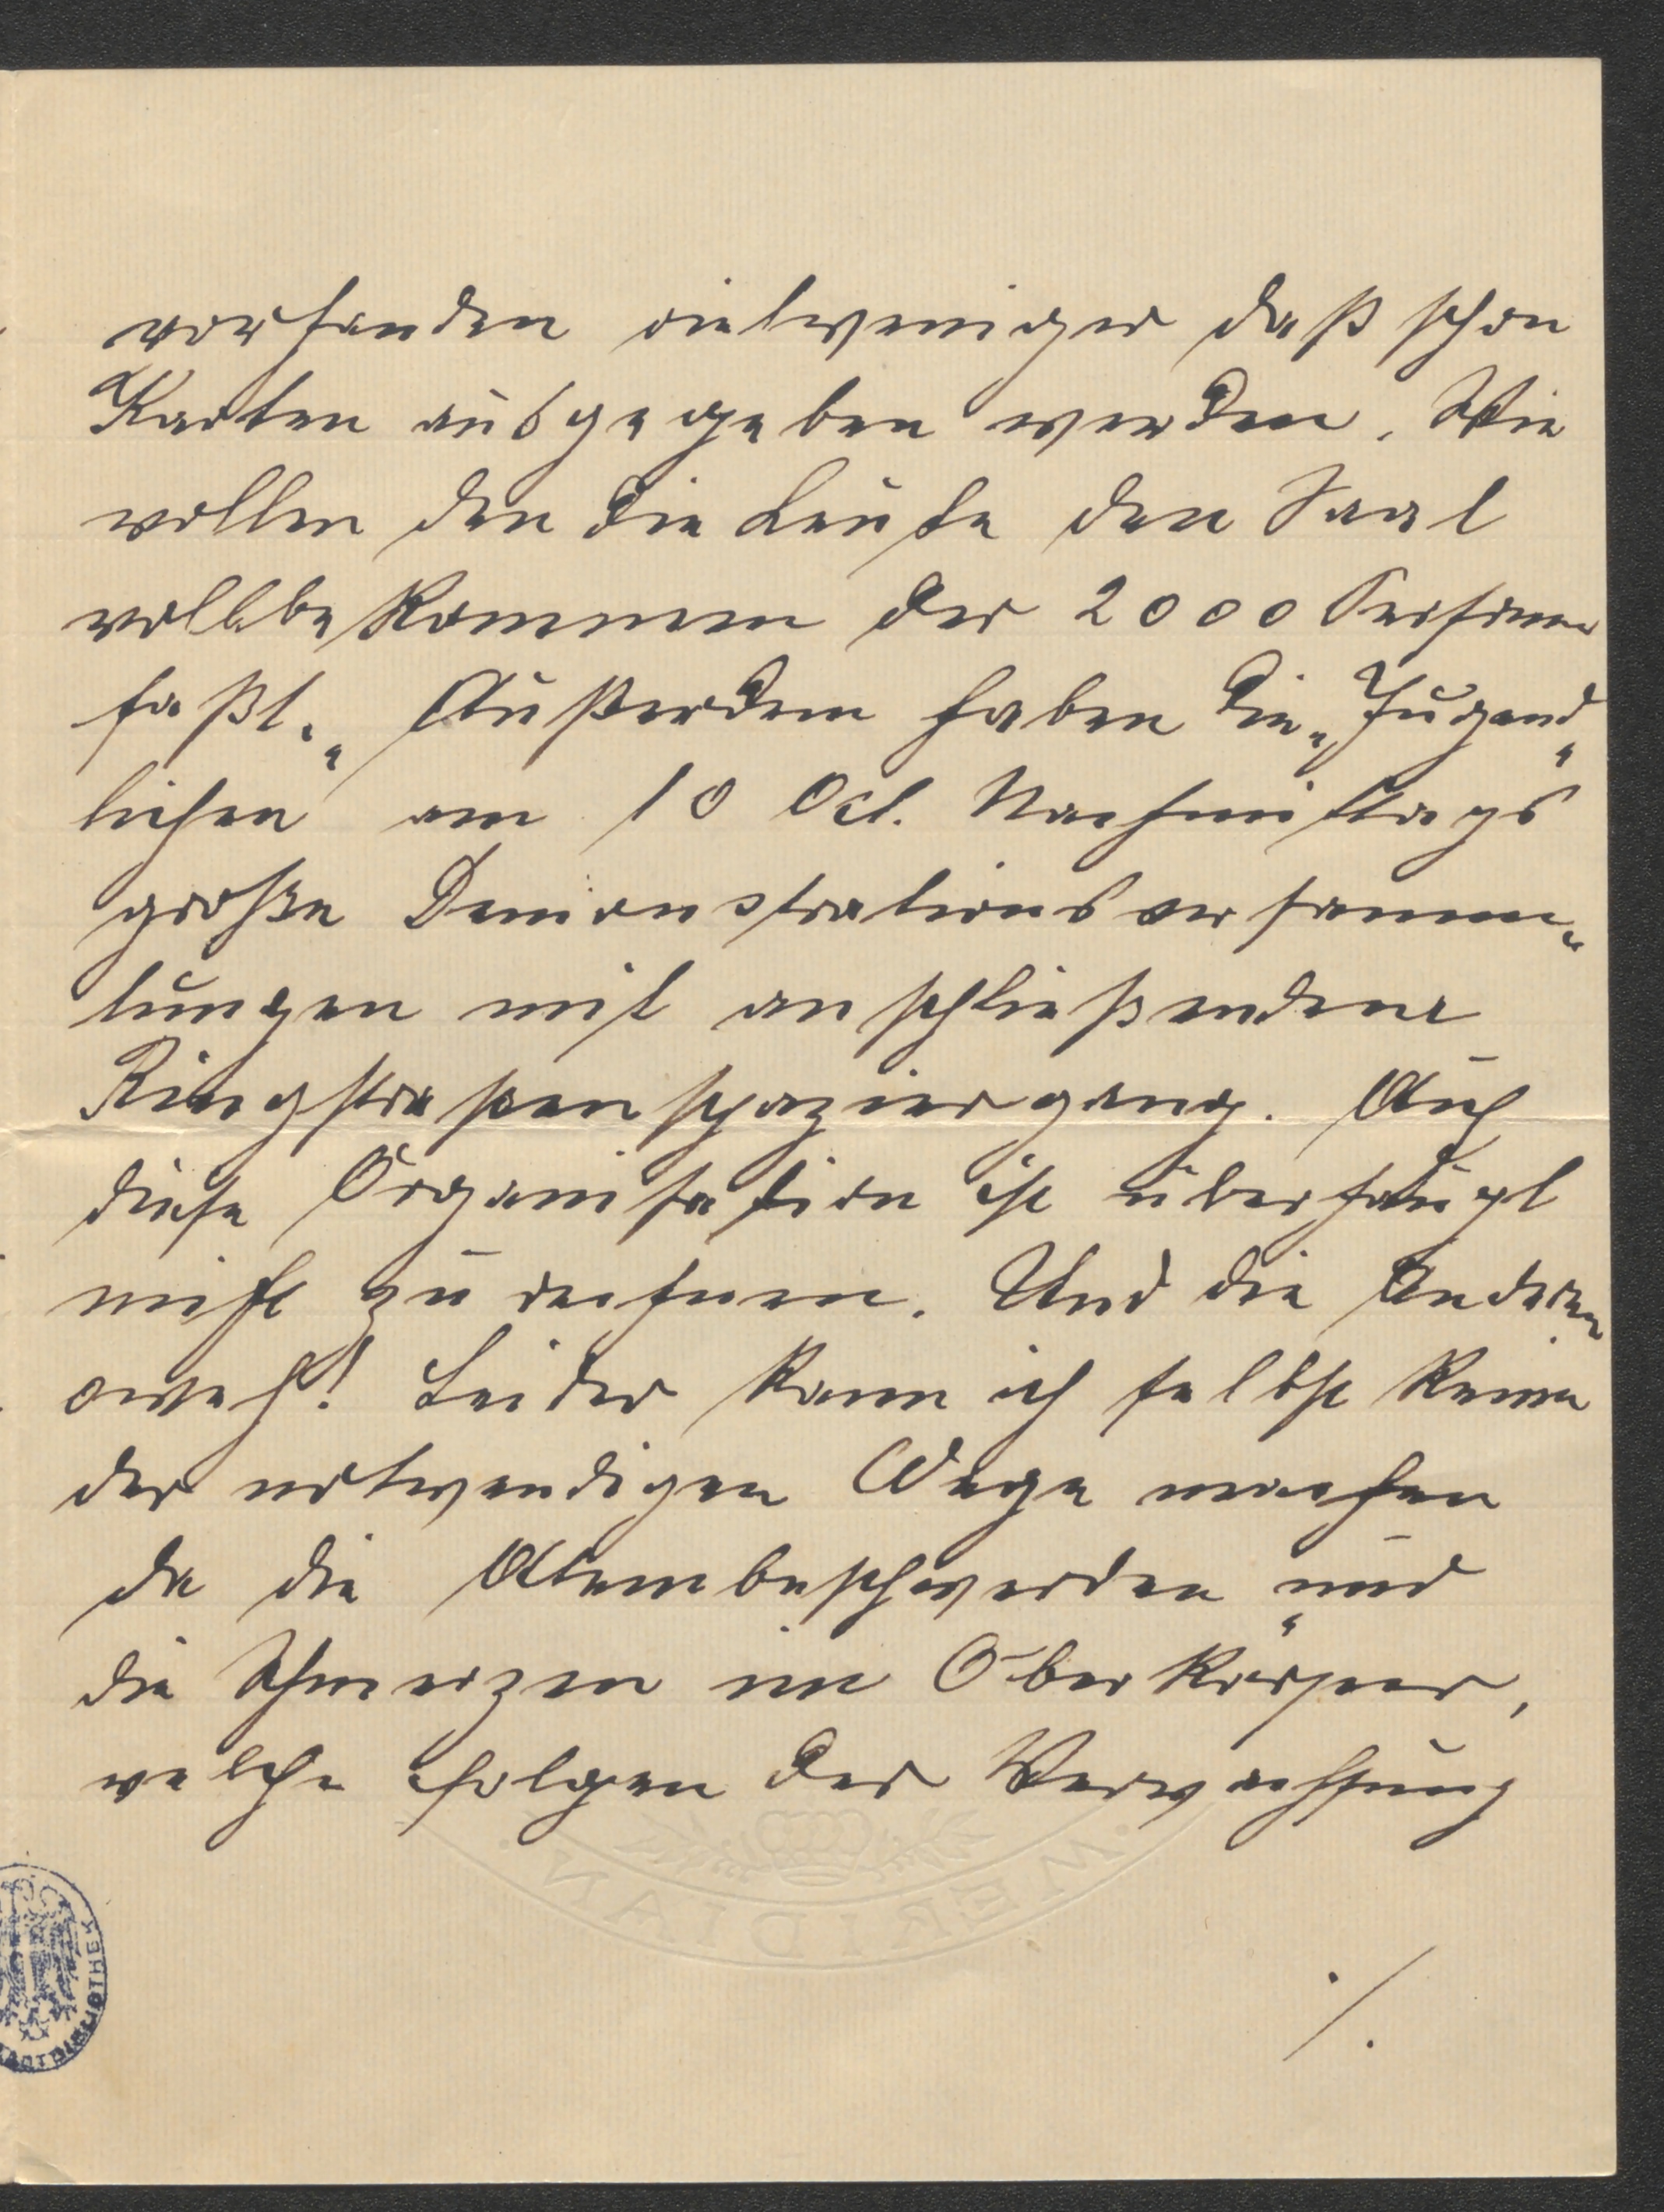 vorhanden vielweniger daß schon
Karten ausgegeben werden. Wie
wollen den die Leute den Saal
vollbekommen der 2000 Personen
faßt. Außerdem haben die „Jugend„
lichen“ am 10 Oct. Nachmittags
große Demonstrationsversamm„
lungen mit anschließendem
Ringstraßenspaziergang. Auf
diese Organisation ist überhaupt
nicht zu rechnen. Und die Anderen
oweh! Leider kann ich selbst keine
der notwendigen Wege machen
da die Atembeschwerden und
die Schmerzen im Oberkörper,
welche Folgen der Verwachsung
./.
MERIDIAN
STADTBIBLIOTHEK